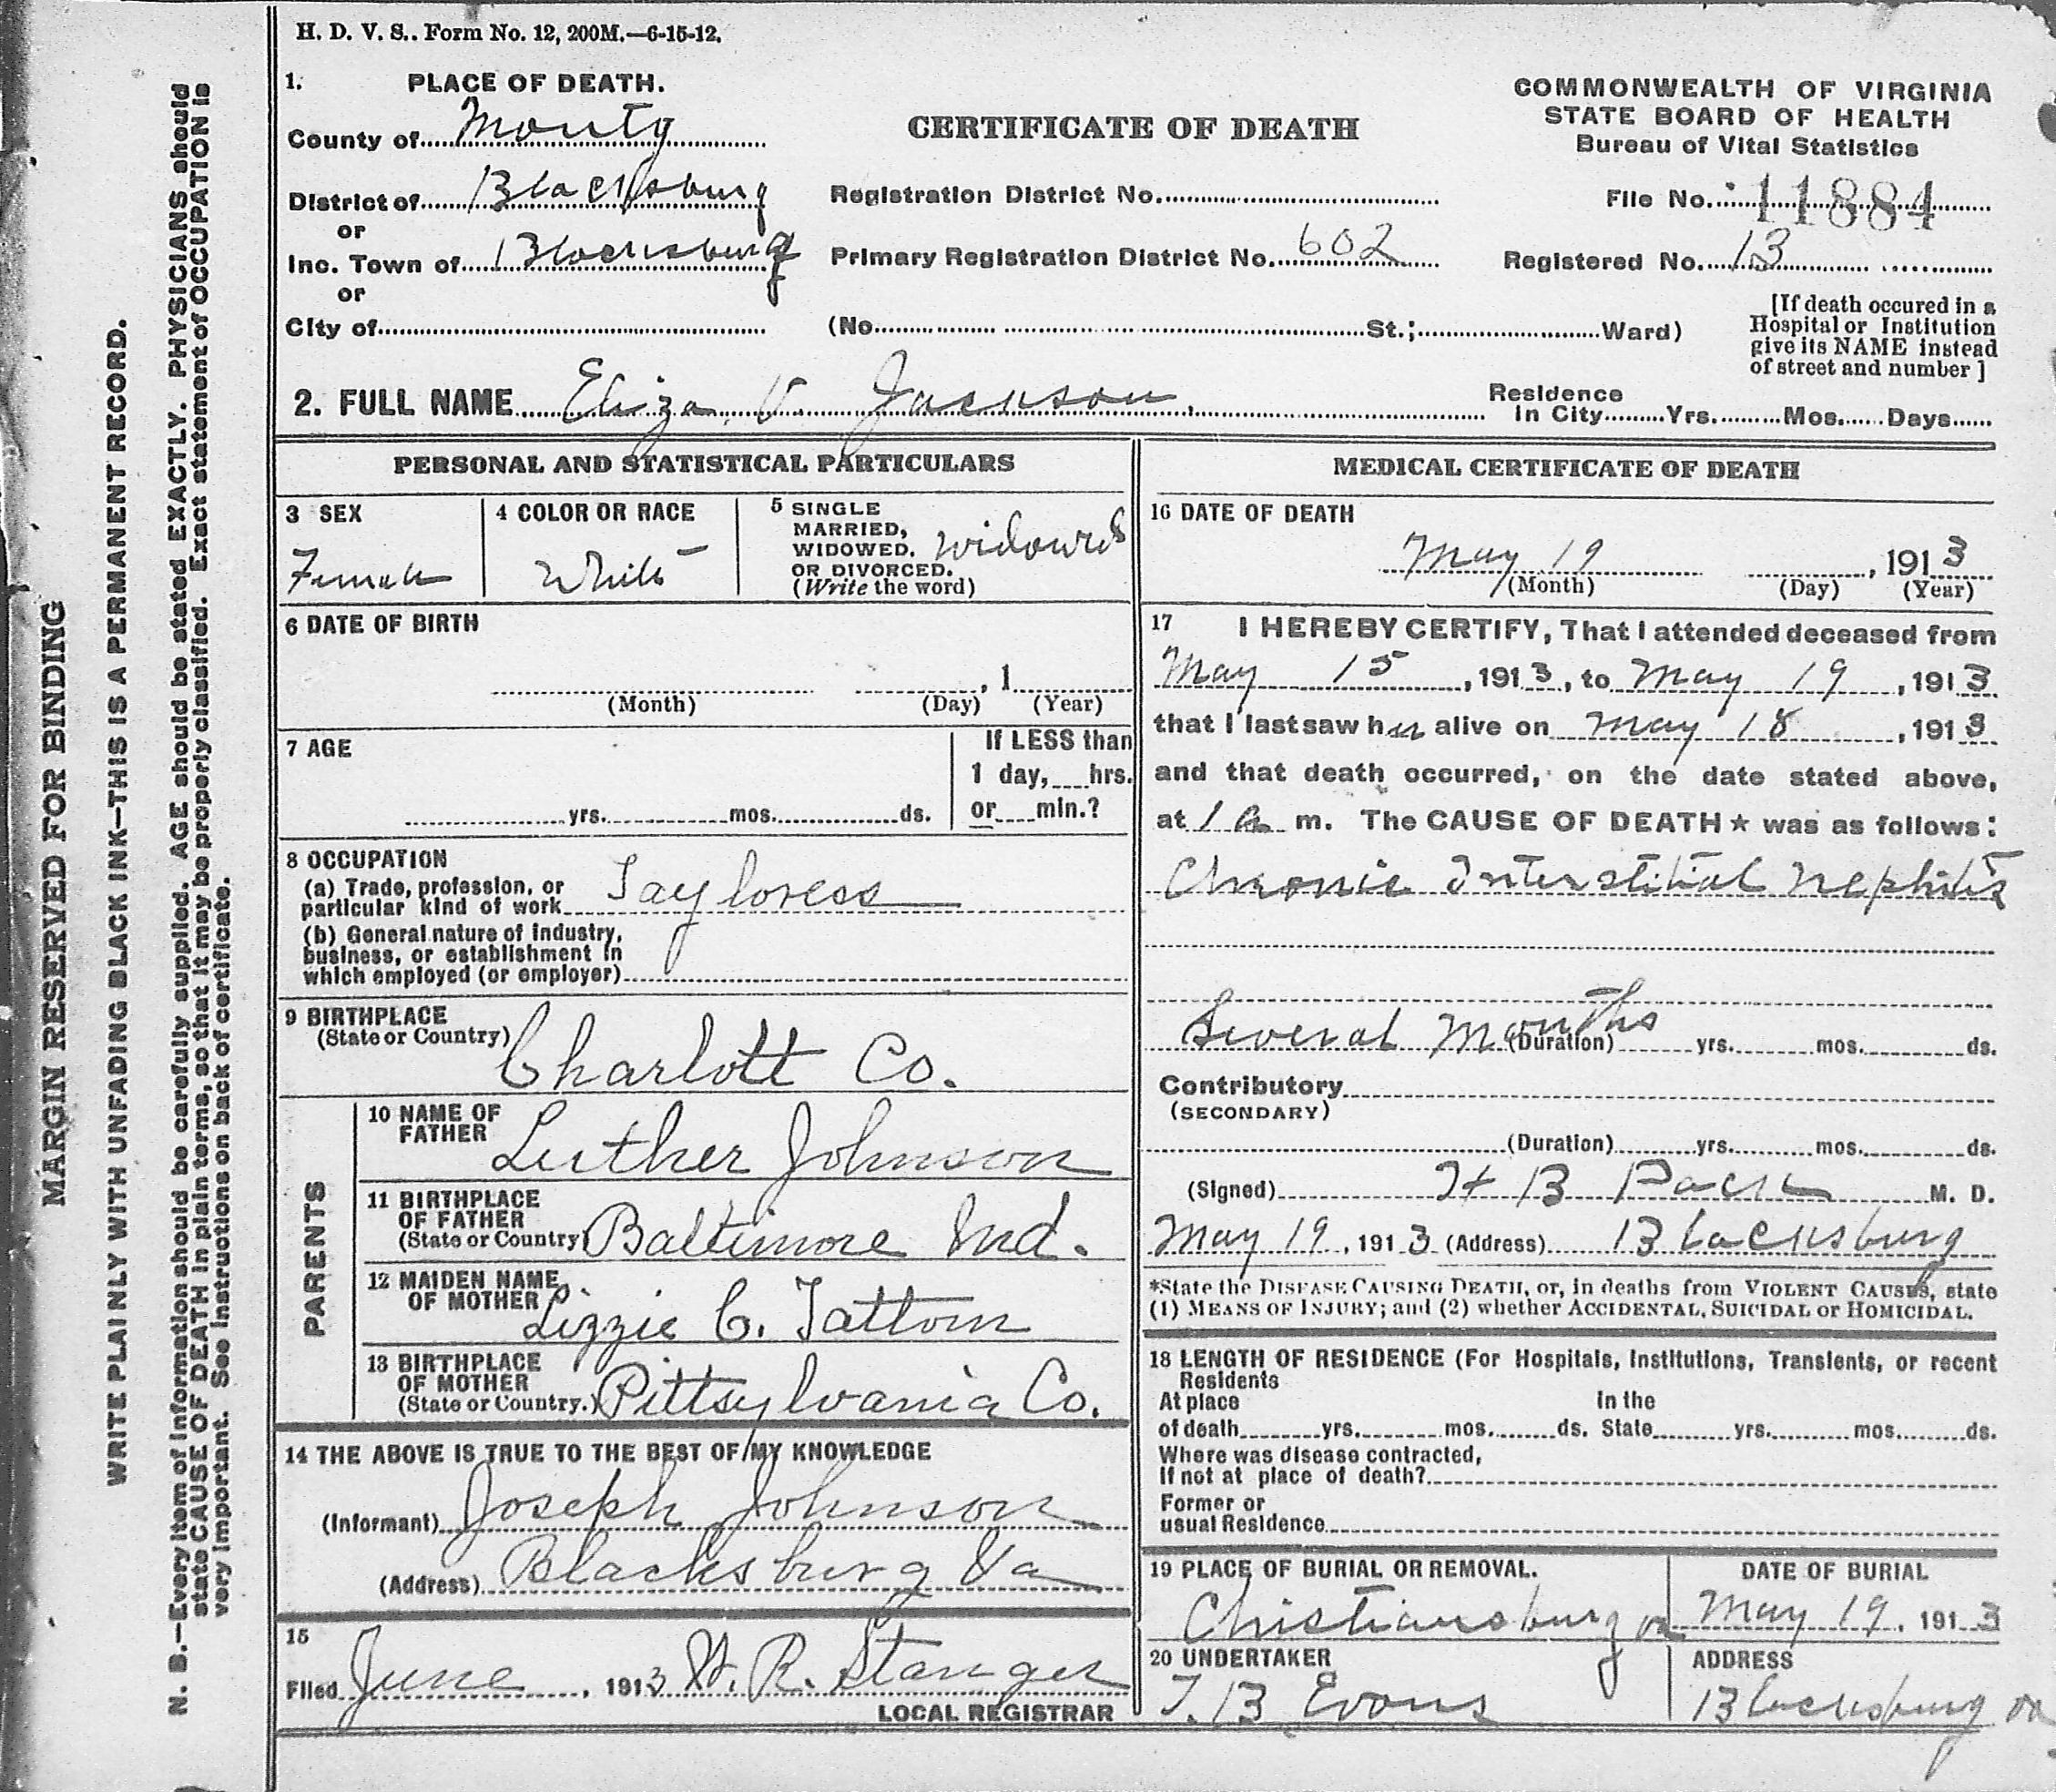 H. D. V. S.. Form No. 12, 200M.—6-15-12.
1. PLACE OF DEATH.
County of Montg
District of Blacksburg
or
Inc. Town of Blacksburg
or
City of
CERTIFICATE OF DEATH
Registration District No.
Primary Registration District No. 602
(No. St.; Ward)
COMMONWEALTH OF VIRGINIA
STATE BOARD OF HEALTH
Bureau of Vital Statistics
File No. 11884
Registered No. 13
[If death occured in a
Hospital or Institution
give its NAME instead
of street and number ]
2. FULL NAME Eliza V. Jackson
Residence
In City Yrs. Mos. Days
PERSONAL AND STATISTICAL PARTICULARS
3 SEX
Female
4 COLOR OR RACE
White
5 SINGLE
MARRIED,
WIDOWED.
OR DIVORCED.
(Write the word)
widowed
6 DATE OF BIRTH
, 1
(Month) (Day) (Year)
7 AGE
yrs. mos. ds.
If LESS than
1 day, hrs.
or min.?
8 OCCUPATION
(a) Trade, profession, or
particular kind of work Tayloress
(b) General nature of Industry,
business, or establishment in
which employed (or employer)
9 BIRTHPLACE
(State or Country) Charlott Co.
PARENTS
10 NAME OF
FATHER Luther Johnson
11 BIRTHPLACE
OF FATHER
(State or Country Baltimore Md.
12 MAIDEN NAME
OF MOTHER Lizzie C. Tattom
13 BIRTHPLACE
OF MOTHER
(State or Country.) Pittsylvania Co.
14 THE ABOVE IS TRUE TO THE BEST OF MY KNOWLEDGE
(Informant) Joseph Johnson
(Address) Blacksburg Va
15
Filed June , 1913 W. R. Stanger
LOCAL REGISTRAR
MEDICAL CERTIFICATE OF DEATH
16 DATE OF DEATH
May 19 , 1913
(Month) (Day) (Year)
17 I HEREBY CERTIFY, That I attended deceased from
May 15 , 1913, to May 19 , 1913
that I last saw her alive on May 18 , 1913
and that death occurred, on the date stated above,
at 1 a m. The CAUSE OF DEATH ★ was as follows:
Chronic Interstitial Nephritis
Several Months
(Duration) yrs. mos. ds.
Contributory
(SECONDARY)
(Duration) yrs. mos. ds.
(Signed) H B Pack M. D.
May 19, 1913 (Address) Blacksburg
*State the DISEASE CAUSING DEATH, or, in deaths from VIOLENT CAUSES, state
(1) MEANS OF INJURY; and (2) whether ACCIDENTAL, SUICIDAL or HOMICIDAL.
18 LENGTH OF RESIDENCE (For Hospitals, Institutions, Transients, or recent
Residents
At place In the
of death yrs. mos. ds. State yrs. mos. ds.
Where was disease contracted,
If not at place of death?
Former or
usual Residence
19 PLACE OF BURIAL OR REMOVAL.
Christiansburg va
DATE OF BURIAL
May 19, 1913
20 UNDERTAKER
T. B Evans
ADDRESS
Blacksburg va
MARGIN RESERVED FOR BINDING
WRITE PLAINLY WITH UNFADING BLACK INK—THIS IS A PERMANENT RECORD.
N. B.—Every item of Information should be carefully supplied. AGE should be stated EXACTLY. PHYSICIANS should
state CAUSE OF DEATH in plain terms, so that it may be properly classified. Exact statement of OCCUPATION is
very important. See instructions on back of certificate.